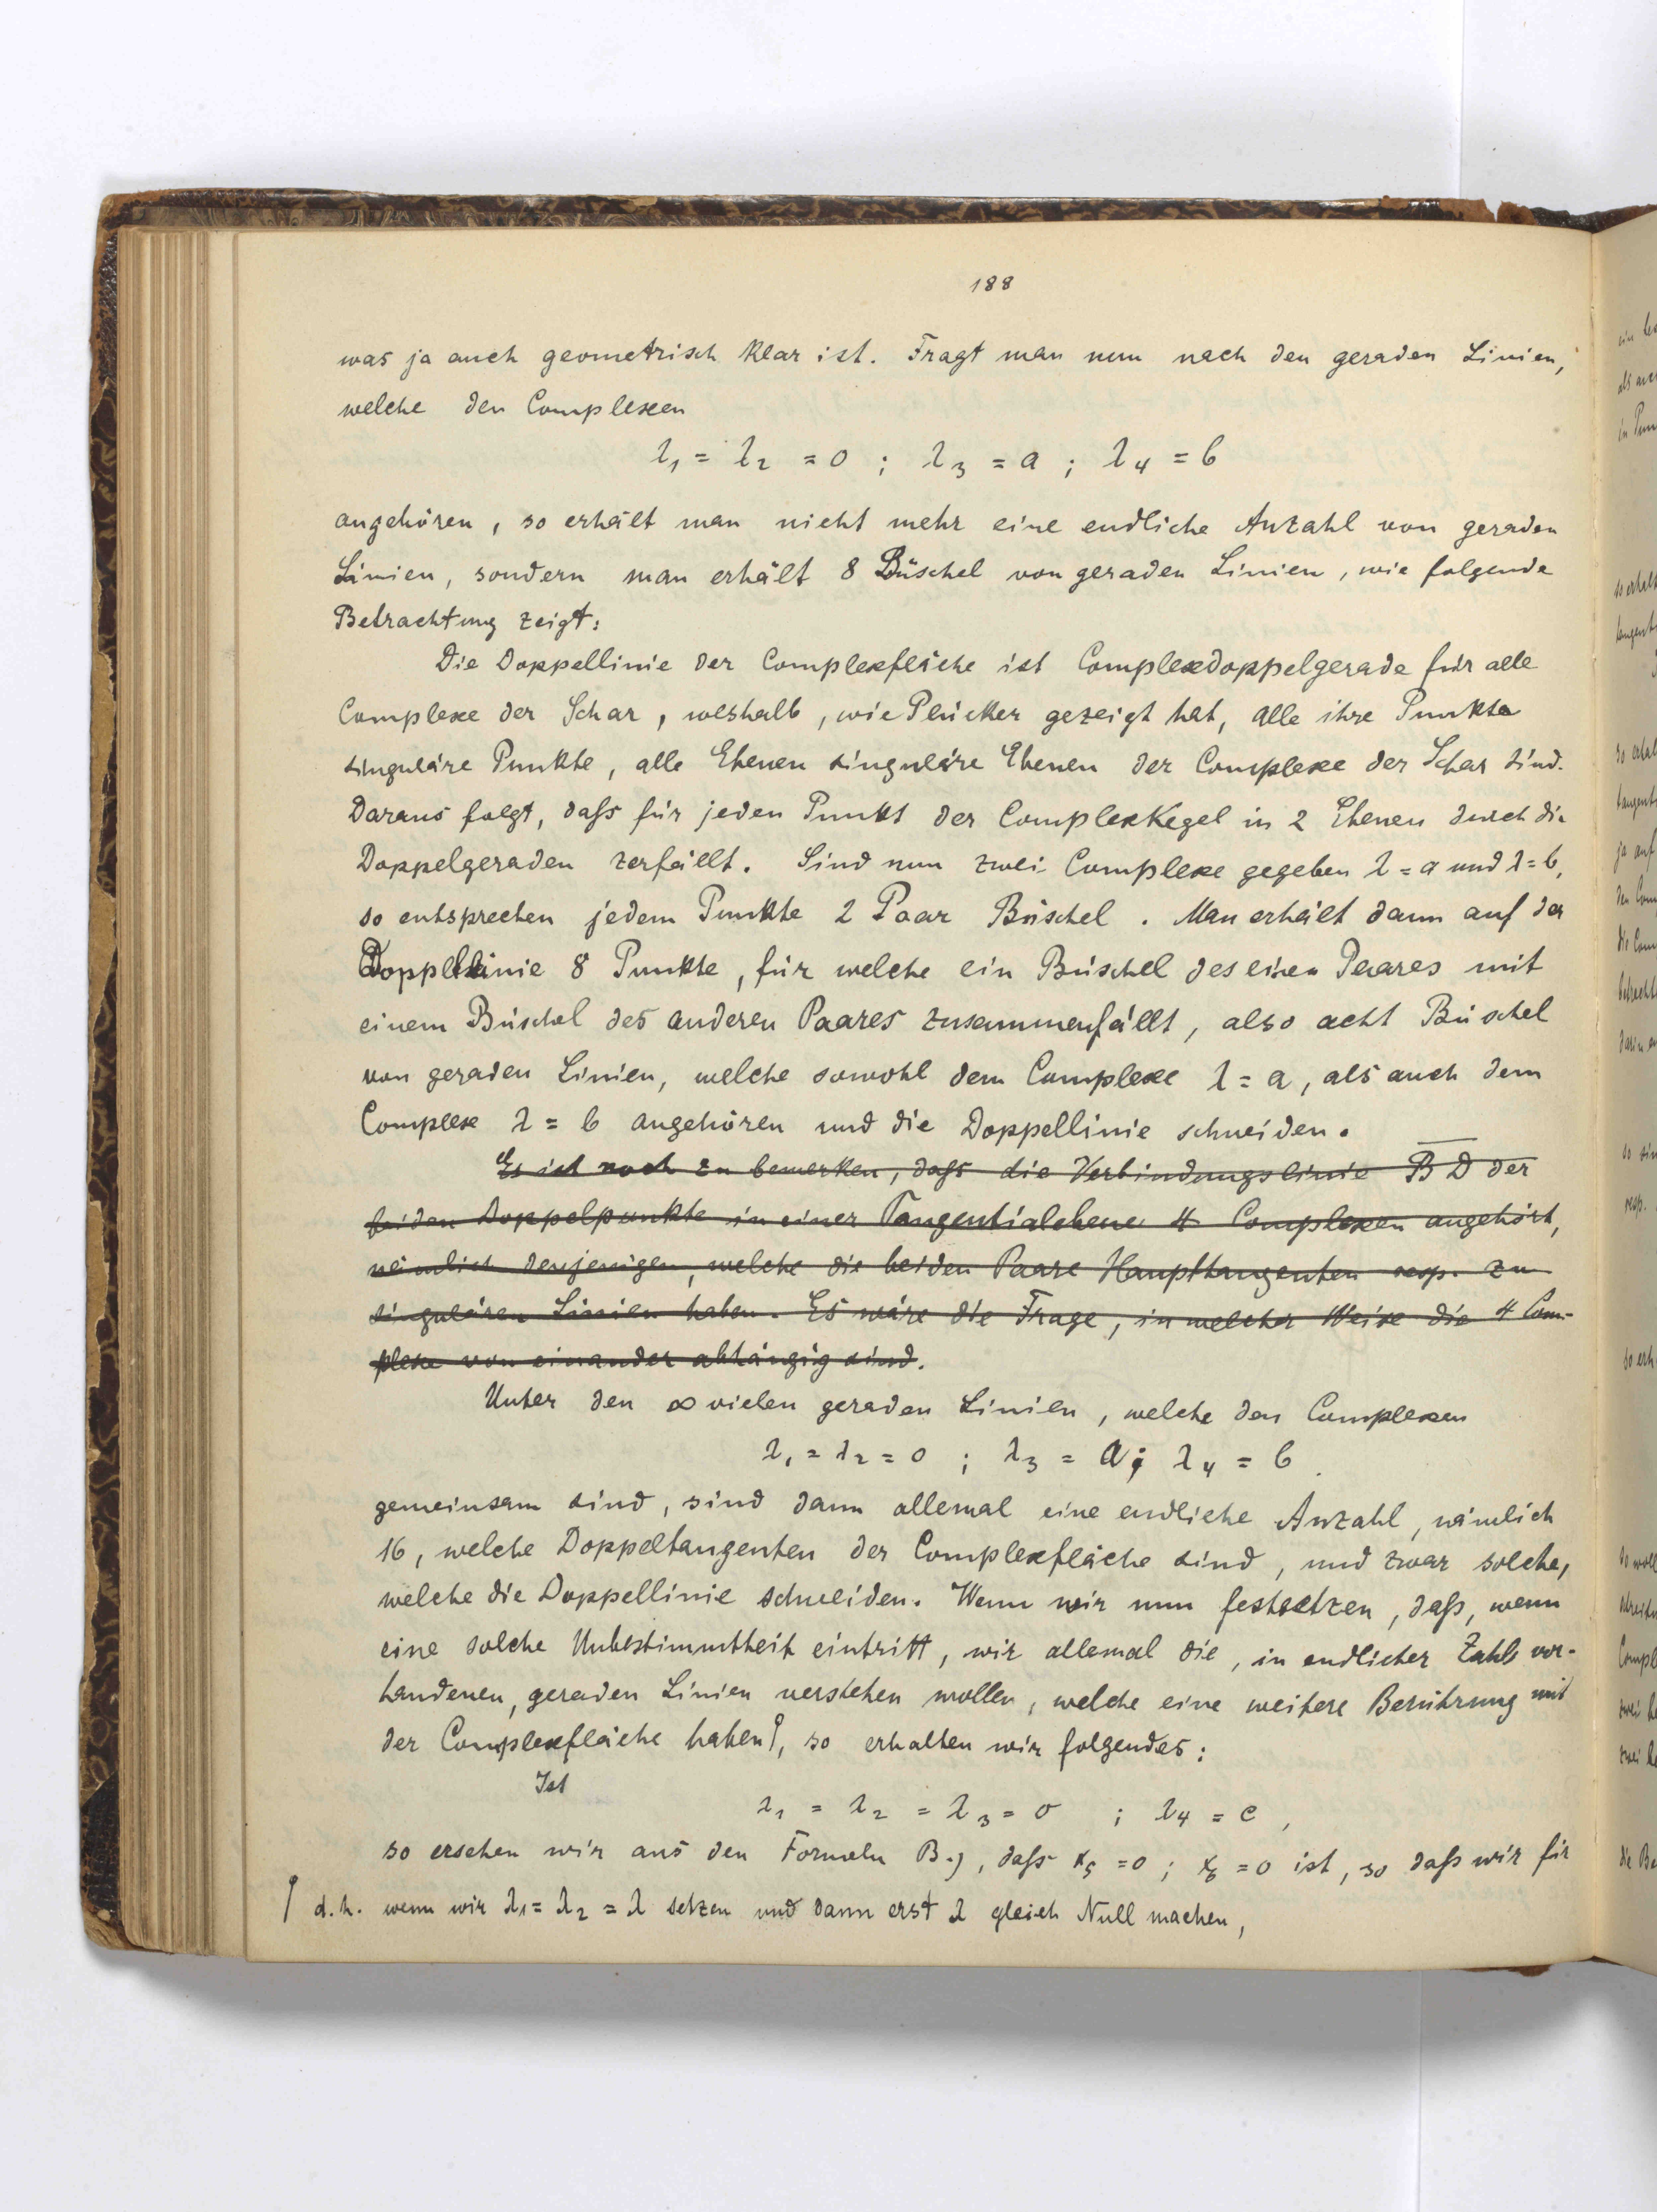 188
was ja auch geometrisch klar ist. Fragt man nun nach den geraden Linien,
welche den Complexen
λ₁ = λ₂ = 0 ; λ₃ = a ; λ₄ = b
angehören, so erhält man nicht mehr eine endliche Anzahl von geraden
Linien, sondern man erhält 8 Büschel von geraden Linien, wie folgende
Betrachtung zeigt:
Die Doppellinie der Complexfläche ist Complexdoppelgerade für alle
Complexe der Schar, weshalb, wie Plücker gezeigt hat, alle ihre Punkte
singuläre Punkte, alle Ebenen singuläre Ebenen der Complexe der Schar sind.
Daraus folgt, daß für jeden Punkt der Complexkegel in 2 Ebenen durch die
Doppelgeraden zerfällt. Sind nun zwei Complexe gegeben λ = a und λ = b,
so entsprechen jedem Punkte 2 Paar Büschel. Man erhält dann auf der
Doppellinie 8 Punkte, für welche ein Büschel des einen Paares mit
einem Büschel des anderen Paares zusammenfällt, also acht Büschel
von geraden Linien, welche sowohl dem Complexe λ = a, als auch dem
Complexe λ = b angehören und die Doppellinie schneiden.
Es ist noch zu bemerken, daß die Verbindungslinie B D der
beiden Doppelpunkte in einer Tangentialebene 4 Complexen angehört,
nämlich denjenigen, welche die beiden Paare Haupttangenten resp. zu
singulären Linien haben. Es wäre die Frage, in welcher Weise die 4 Com-
plexe von einander abhängig sind.
Unter den ∞ vielen geraden Linien, welche den Complexen
λ₁ = λ₂ = 0 ; λ₃ = a; λ₄ = b
gemeinsam sind, sind dann allemal eine endliche Anzahl, nämlich
16, welche Doppeltangenten der Complexfläche sind, und zwar solche,
welche die Doppellinie schneiden. Wenn wir nun festsetzen, daß, wenn
eine solche Unbestimmtheit eintritt, wir allemal die, in endlicher Zahl vor-
handenen, geraden Linien verstehen wollen, welche eine weitere Berührung mit
der Complexfläche haben⌠, so erhalten wir folgendes:
Ist
λ₁ = λ₂ = λ₃ = 0 ; λ₄ = c,
so ersehen wir aus den Formeln B.), daß x₅ = 0 ; x₆ = 0 ist, so daß wir für
⌠ d.h. wenn wir λ₁ = λ₂ = λ setzen und dann erst λ gleich Null machen,